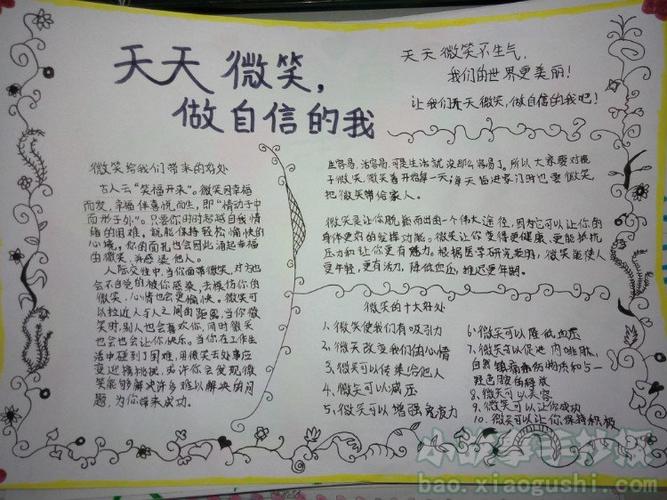 天天微笑，
做自信的我
天天微笑不生气，
我们的世界更美丽！
让我们天天微笑，做自信的我吧！
微笑给我们带来的好处
古人云“笑福开来”。微笑因幸福
而发，幸福伴喜悦而生，即“情动于中
而形于外”。只要你时时超越自我情
绪的困难，就能保持轻松愉快的
心境。你的面孔也会因此涌起幸福
的微笑，并感染他人。
人际交往中，当你面带微笑，对方也
会不自觉的被你感染，去模仿你的
微笑，心情也会更愉快。微笑可
以拉近人与人之间的距离，当你微
笑时，别人也会喜欢你，同时微笑
也会也会让你快乐。当你在工作生
活中碰到了困难，用微笑去处事应
变迎接挑战，或许你会发现微
笑能够解决许多难以解决的问
题，为你带来成功。
生容易，活容易，可是生活就没那么容易了。所以大家要对镜
子微笑，微笑着开始每一天，每天临进家门时也要微笑，
把微笑带给家人。
微笑是让你脱颖而出的一个伟大途径，因为它可以让你的
身体更好的发挥功能。微笑让你变得更健康，更能够抵抗
压力和让你更有魅力。根据医学研究表明，微笑能使人
更年轻，更有活力，降低血压，推迟更年期。
微笑的十大好处
1、微笑使我们有吸引力
2、微笑改变我们的心情
3、微笑可以传染给他人
4、微笑可以减压
5、微笑可以增强免疫力
6、微笑可以降低血压
7、微笑可以促进内啡肽，
自然镇痛的物质和5-
羟色胺的释放
8、微笑可以美容
9、微笑可以让你成功
10、微笑可以让你保持积极
小故事手抄报
bao.xiaogushi.com